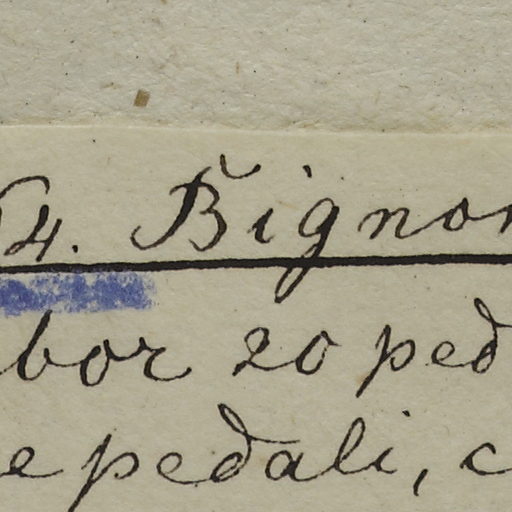 54. Bignon
bor 20 ped
e pedali, c